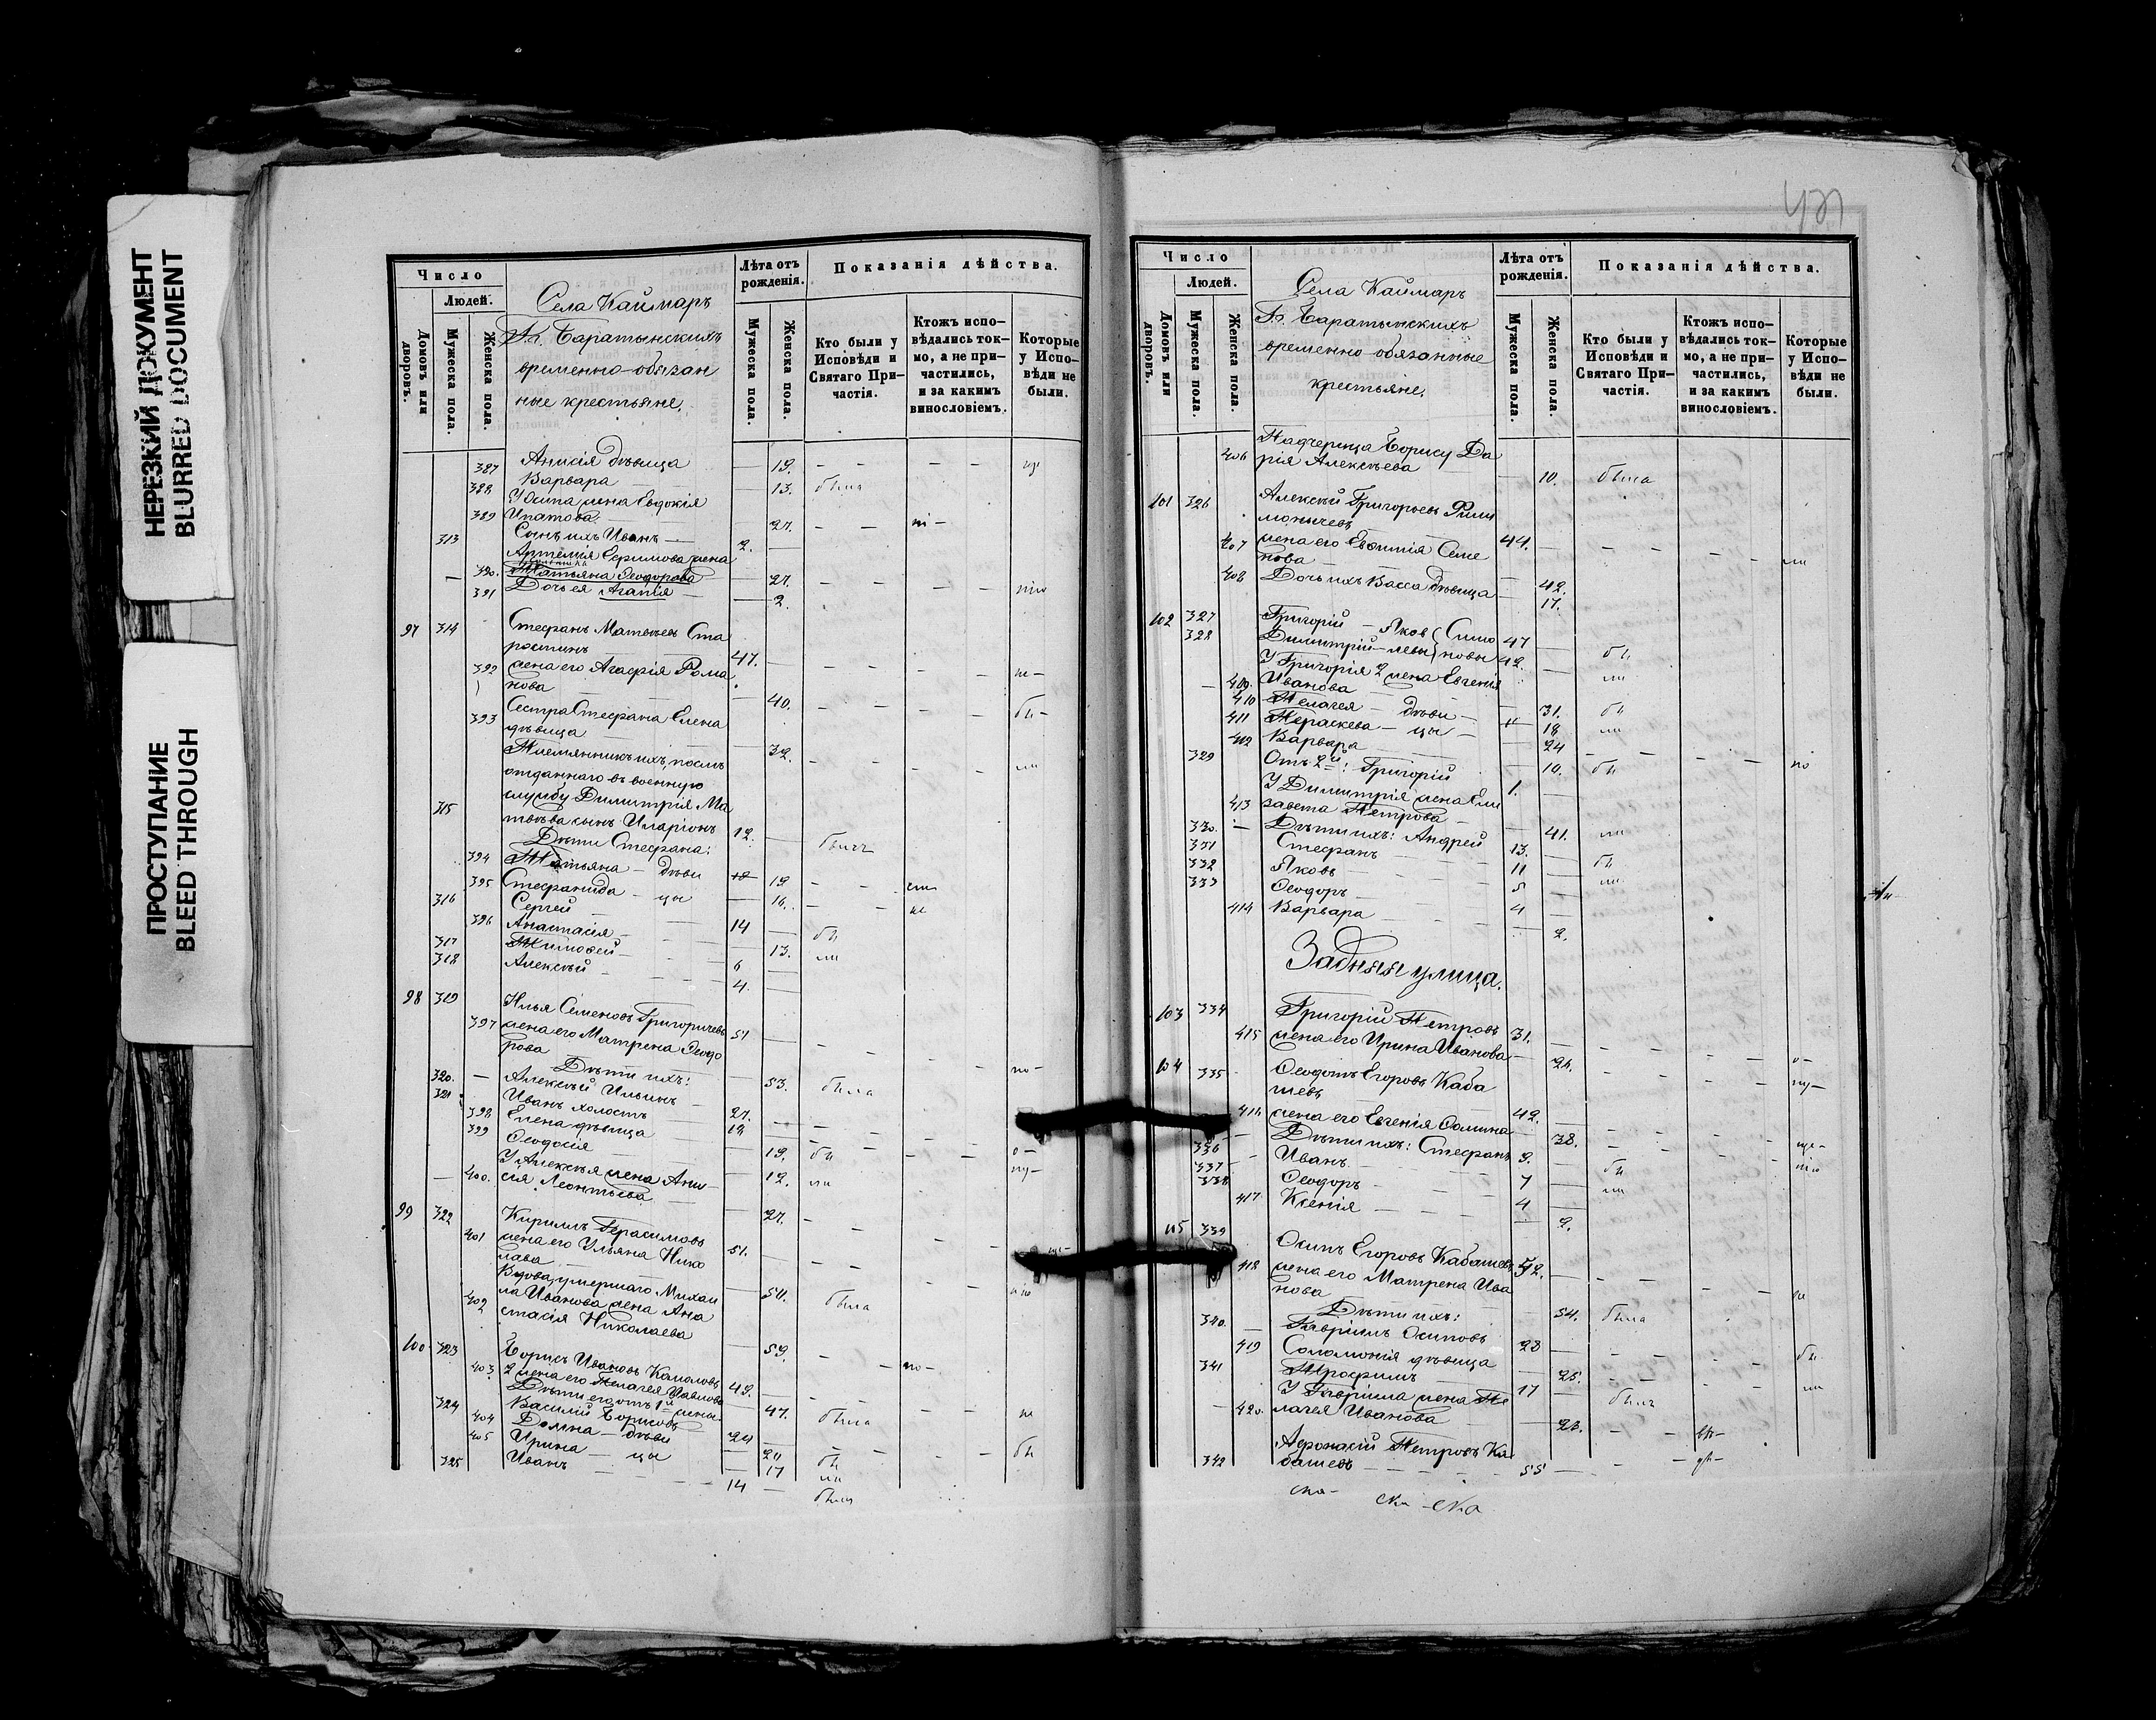 НЕРЕЗКИЙ ДОКУМЕНТ
BLURRED DOCUMENT
ПРОСТУПАНИЕ
BLEED THROUGH
Число
Людей.
Домовъ или дворовъ.
Мужеска пола.
Женска пола.
Села Каймаръ
Гг. Баратынскихъ
временно-обязан
ные крестьяне.
Лѣта отъ рожденія.
Мужеска пола.
Женска пола.
Показанія дѣйства.
Кто были у Исповѣди и Святаго Причастія.
Ктожъ исповѣдались токмо, а не причастились, и за какимъ винословіемъ.
Которые у Исповѣди не были.
387 Анисія дѣвица — 19.
388 Варвара — 13. была
У Осипа жена Евдокія
389 Ипатова — 27.
313 Сынъ ихъ Иванъ — 2. —
Артемія Ефимова жена
390. Татьяна Ѳеодорова — 27.
391 Дочь ея Агапія — 2.
97 314 Стефанъ Матвѣевъ Ста
ростинъ 47. —
392 жена его Агафія Рома
нова — 40.
393 Сестра Стефана Елена
дѣвица — 32.
Племянникъ ихъ, послѣ
отданнаго въ военную
службу Димитрія Ма
315 твѣева сынъ Иларіонъ 12. — былъ
Дѣти Стефана:
394 Татьяна — дѣви — 19
395 Стефанида — цы — 16.
316 Сергей — 14 — бы
396 Анастасія — 13. ли
317 Тимофей — 6 —
318 Алексѣй — 4. —
98 319 Илья Семеновъ Григоричевъ 51 —
397 жена его Матрена Ѳеодо
рова — 53. была
Дѣти ихъ:
320. — Алексѣй Ильинъ — 27. —
321 Иванъ холостъ 18 —
398 Елена дѣвица — 19. бы
399 Ѳеодосія — 12. ли
У Алексѣя жена Ани
400. сія Леонтьева — 27.
99 322 Кириллъ Герасимовъ 51. —
401 жена его Ульяна Нико
лава — 50. была
Вдова, умершаго Михаи
ла Иванова жена Ана
402 стасія Николаева — 59.
100 323 Борисъ Ивановъ 49. —
403 2 жена его Пелагея — 47. была
Дѣти его отъ 1й жены
324 Василій Борисовъ 24 —
404 Домна — дѣви — 20 бы
405 Ирина — цы — 17 ли
325 Иванъ — 14 — былъ
Число
Людей.
Домовъ или дворовъ.
Мужеска пола.
Женска пола.
Села Каймаръ
Гг. Баратынскихъ
временно-обязанные
крестьяне.
Лѣта отъ рожденія.
Мужеска пола.
Женска пола.
Показанія дѣйства.
Кто были у Исповѣди и Святаго Причастія.
Ктожъ исповѣдались токмо, а не причастились, и за какимъ винословіемъ.
Которые у Исповѣди не были.
Падчерица Борису Да
406 рія Алексѣева — 10. была
101 326 Алексѣй Григорьевъ Фили
моничевъ 44. —
407 жена его Евѳимія Семе
нова — 42.
408 Дочь ихъ Васса дѣвица — 17.
102 327 Григорій — Яков Симо 47 — бы
328 Димитрій — левы новы 42. — ли
У Григорія 2 жена Евгенія
409. Иванова — 31. бы
410 Пелагея — дѣви — 18 ли
411 Параскева — цы — 24
412 Варвара — 10. бы
329 Отъ 2й: Григорій 1. —
У Димитрія жена Ели
413 завета Петрова — 41. ли
330. — Дѣти ихъ: Андрей 13. —
331 Стефанъ 11 — бы
332 Яковъ 5 — ли
333 Ѳеодоръ 4 —
414 Варвара — 2.
Задняя улица.
103 334 Григорій Петровъ 31. —
415 жена его Ирина Иванова — 26.
104 335 Ѳеодотъ Егоровъ Каба
шевъ 42. —
416 жена его Евгенія Ѳомина — 38.
336 Дѣти ихъ: Стефанъ 9. — бы
337 Иванъ 7 — ли
338 Ѳеодоръ 4 —
417 Ксенія — 2.
105 339 Осипъ Егоровъ Кабашевъ 52. —
418 жена его Матрена Ива
нова — 54. была
Дѣти ихъ:
340. Гавріилъ Осиповъ 28 —
419 Соломонія дѣвица — 25.
341 Трофимъ 17 — былъ
У Гавріила жена Пе
420. лагея Иванова — 26.
Афонасій Петровъ Ка
342 башевъ 55 —